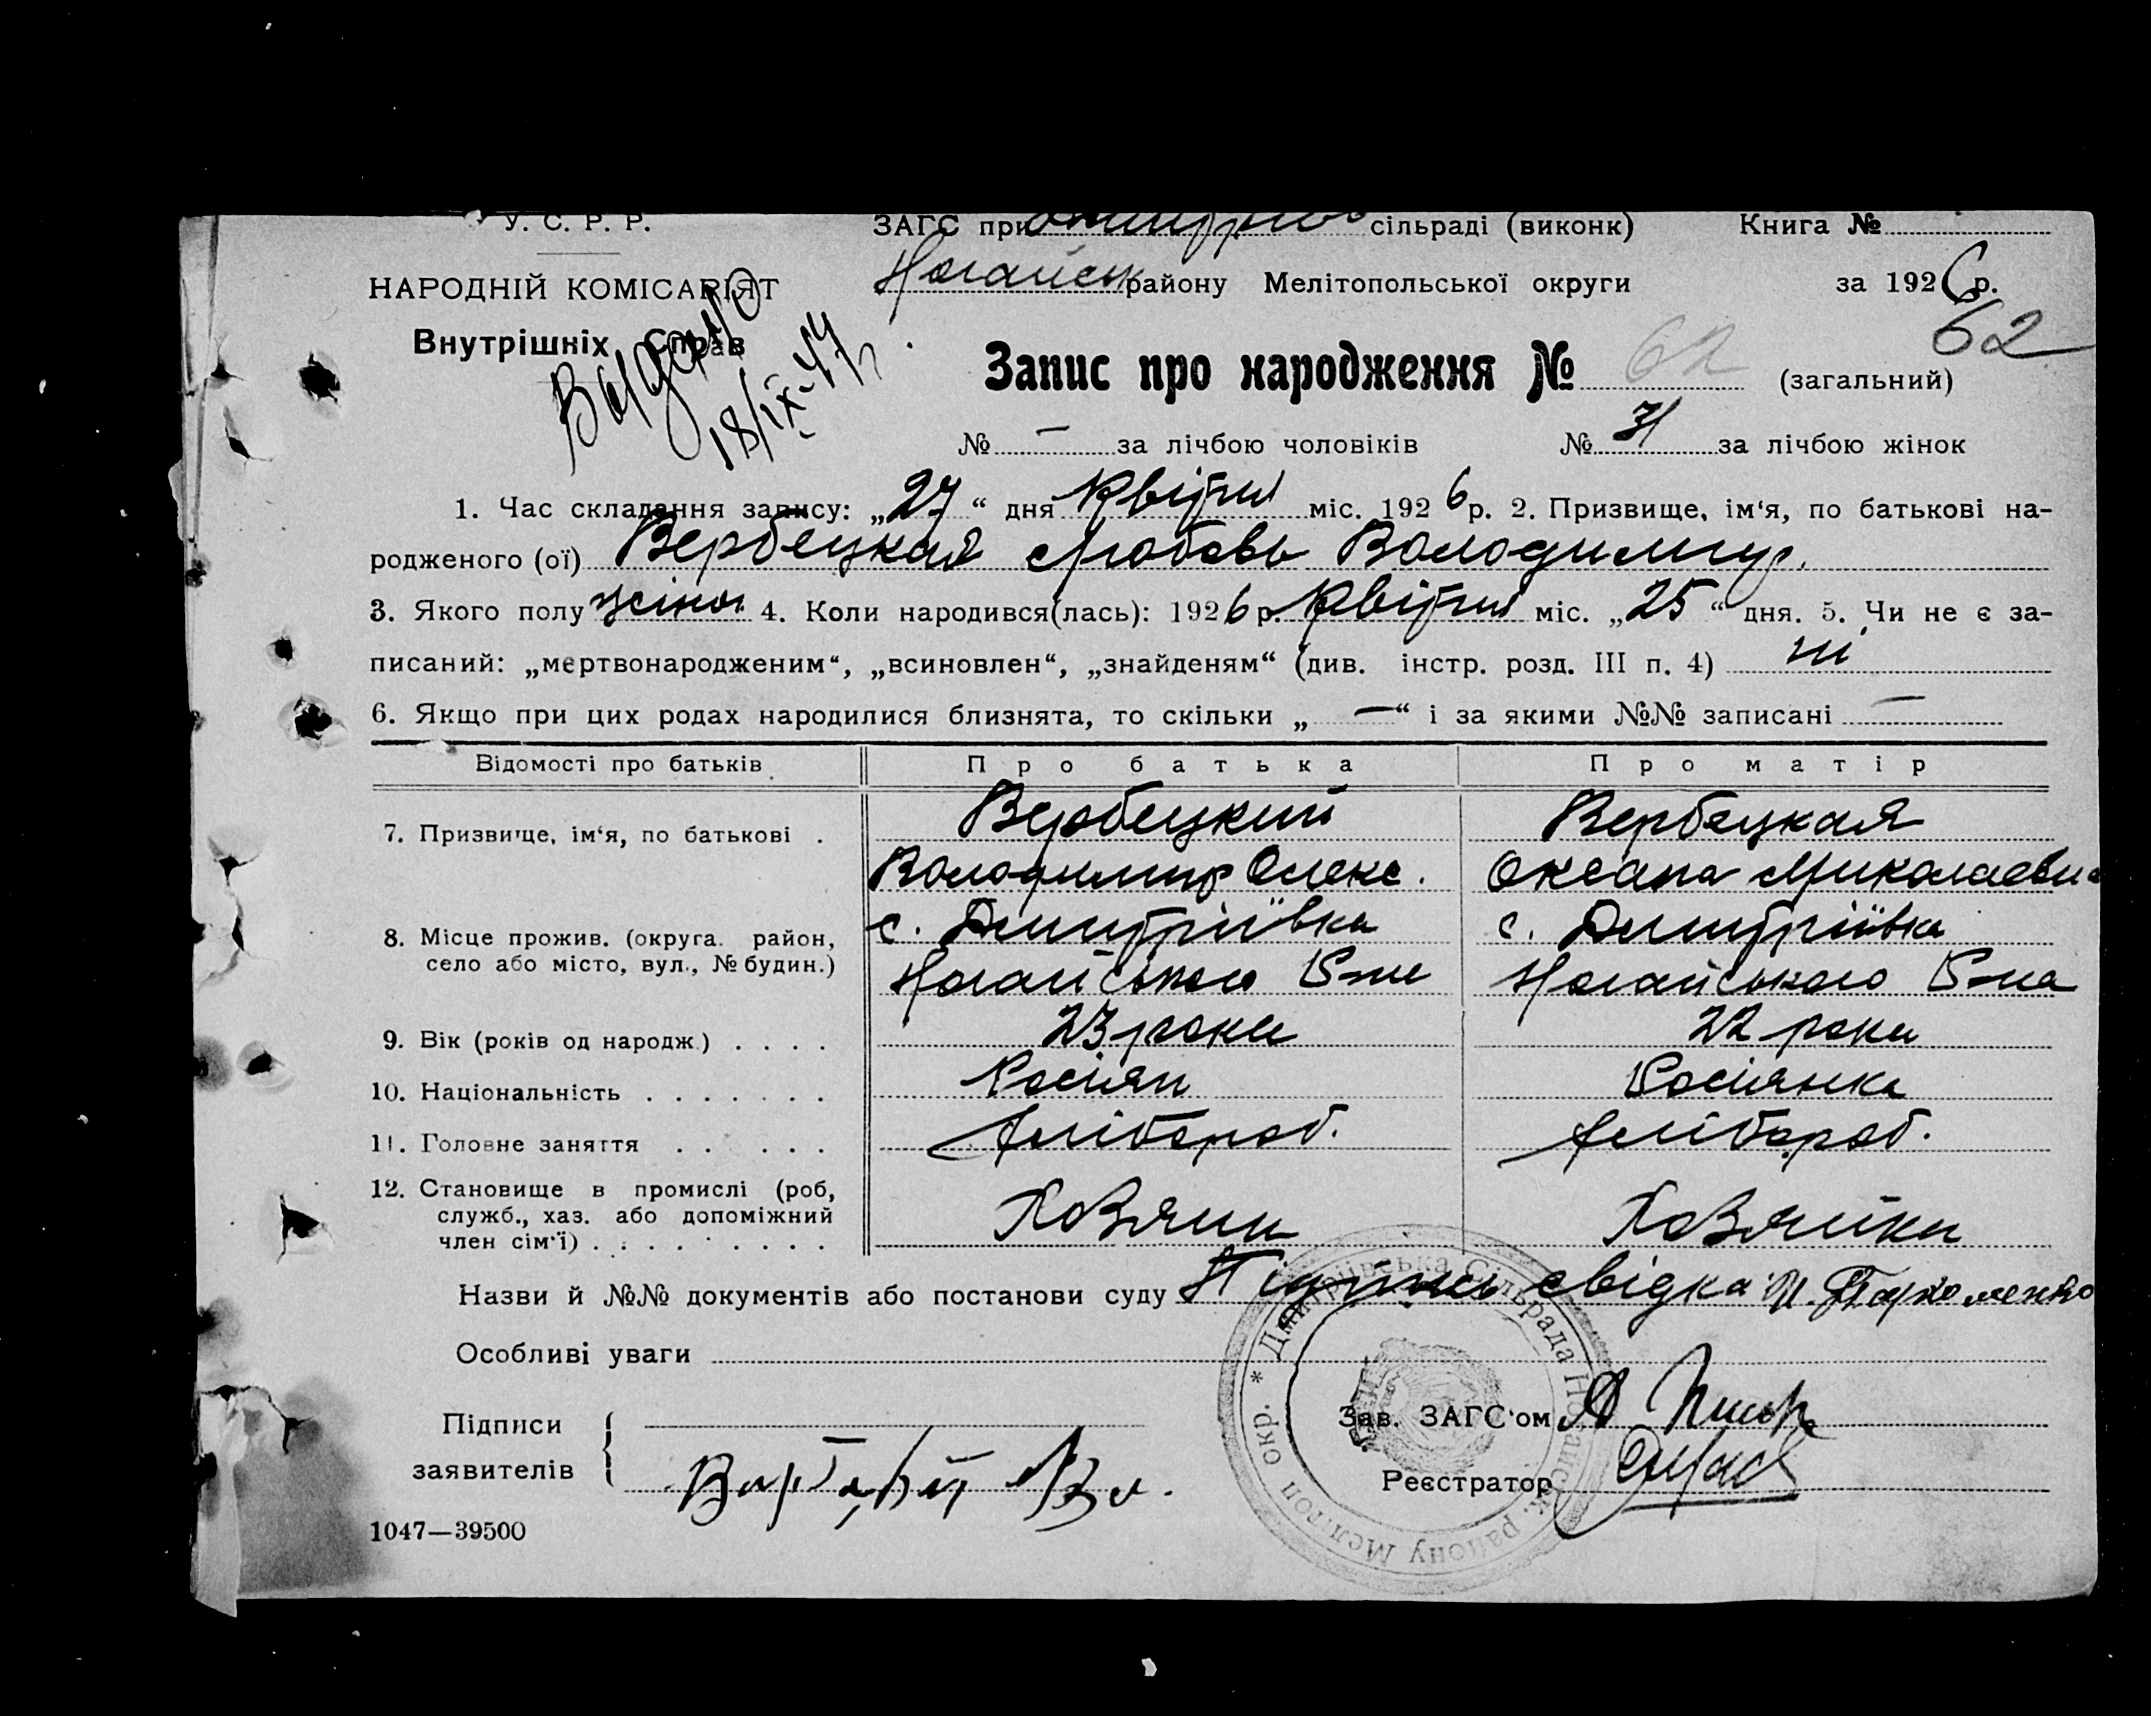 У. С. Р. Р. ЗАГС при сільраді (виконк) Книга №
НАРОДНІЙ КОМІСАРІЯТ Ногайськ району Мелітопольської округи за 1926 р.
Внутрішніх Справ 62
Выдано
18/IX-44
Запис про народження № 62 (загальний)
№ — за лічбою чоловіків № 31 за лічбою жінок
1. Час складання запису: „27“ дня Квітня міс. 1926 р. 2. Призвище, ім‘я, по батькові на-
родженого (ої) Вербецкая Любовь Володимир.
3. Якого полу жіноч. 4. Коли народився(лась): 1926 р. Квітня міс. „25“ дня. 5. Чи не є за-
писаний: „мертвонародженим“, „всиновлен“, „знайденям“ (див. інстр. розд. III п. 4) ні
6. Якщо при цих родах народилися близнята, то скільки „ — “ і за якими №№ записані —
Відомості про батьків Про батька Про матір
7. Призвище, ім‘я, по батькові . Вербецкий Вербецкая
Володимир Олекс. Оксана Миколаевна
8. Місце прожив. (округа. район, с. Дмитріївка с. Дмитріївка
село або місто, вул., № будин.) Ногайського Р-на Ногайського Р-на
9. Вік (років од народж.) . . . . 23 роки 22 роки
10. Національність . . . . . . . Росіян Росіянка
11. Головне заняття . . . . . . Хлібороб. Хлібороб.
12. Становище в промислі (роб, Хозяин Хозяйка
служб., хаз. або допоміжний
член сім‘ї) . . . . . . . . .
Назви й №№ документів або постанови суду Підпись свідка И. Пархоменко
Особливі уваги
Підписи
заявителів
Зав. ЗАГС‘ом
Реєстратор
* Дмитріївська Сільрада Ногайськ. району Мелітоп. окр.
1047—39500